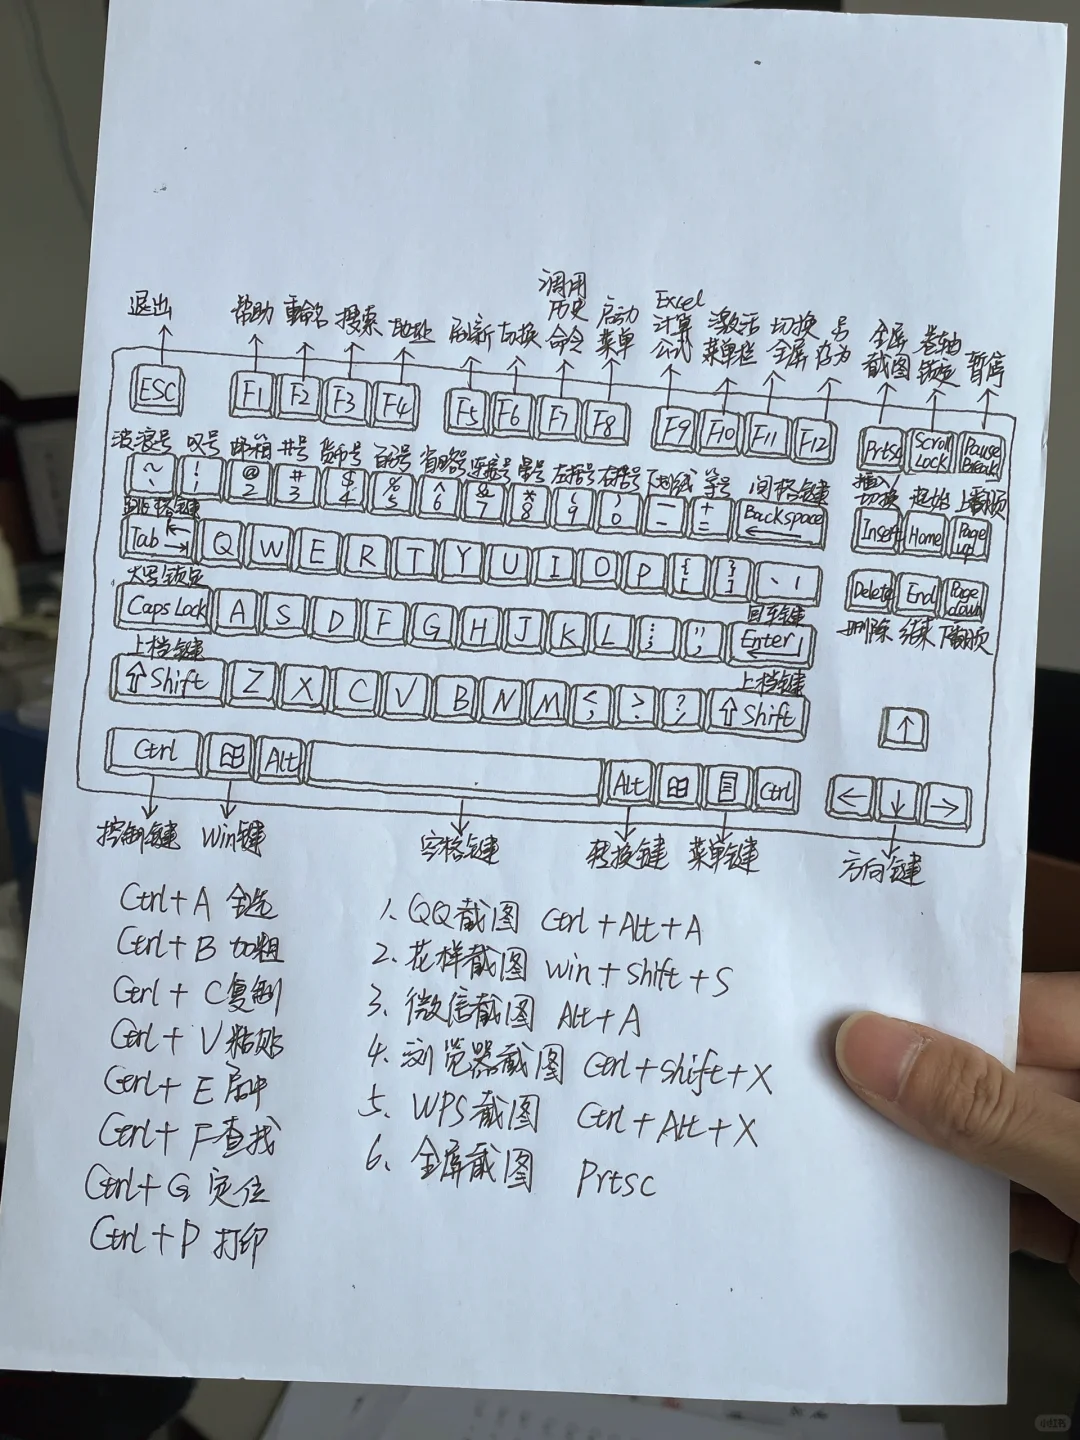 退出 帮助 重命名 搜索 地址 刷新 切换 调用历史命令 启动菜单 Excel计算公式 激活菜单栏 切换全屏 另存为 全屏截图 卷轴锁定 暂停
ESC F1 F2 F3 F4 F5 F6 F7 F8 F9 F10 F11 F12 Prtsc Scroll Lock Pause Break
波浪号 叹号 邮箱 井号 货币号 百分号 省略号 连接号 乘号 左括号 右括号 下划线 等号 间格键 插入/切换 起始 上翻页
~ ` ! 1 @ 2 # 3 $ 4 % 5 ^ 6 & 7 * 8 ( 9 ) 0 — - + = Backspace ← Insert Home Page up
跳格键
Tab Q W E R T Y U I O P { [ } ] 、 | Delete End Page down
大写锁定 回车键 删除 结束 下翻页
Caps Lock A S D F G H J K L : ; " , Enter
上档键 上档键
⇧ Shift Z X C V B N M < , > . ? / ⇧ Shift ↑
Ctrl Alt Alt Ctrl ← ↓ →
控制键 Win键 空格键 转换键 菜单键 方向键
Ctrl+A 全选
Ctrl+B 加粗
Ctrl+C复制
Ctrl+V粘贴
Ctrl+E 居中
Ctrl+F查找
Ctrl+G 定位
Ctrl+P 打印
1、QQ截图 Ctrl+Alt+A
2、花样截图 Win+Shift+S
3、微信截图 Alt+A
4、浏览器截图 Ctrl+shift+X
5、WPS截图 Ctrl+Alt+X
6、全屏截图 Prtsc
小红书